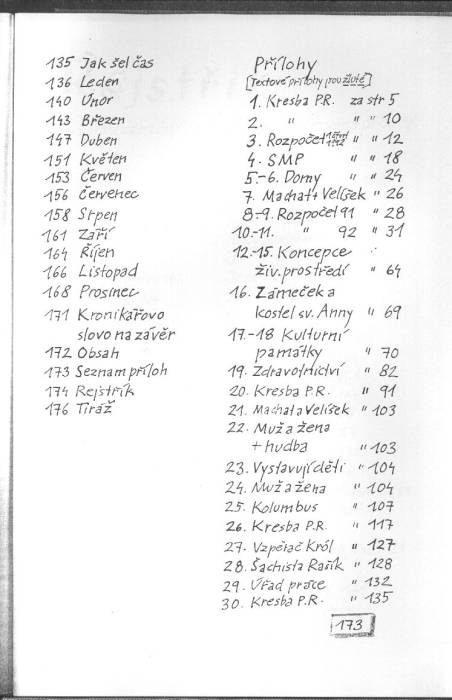 135 Jak šel čas
136 Leden
140 Únor
143 Březen
147 Duben
151 Květen
153 Červen
156 Červenec
158 Srpen
161 Září
164 Říjen
166 Listopad
168 Prosinec
171 Kronikářovo
slovo na závěr
172 Obsah
173 Seznam příloh
174 Rejstřík
176 Tiráž
Přílohy
[Textové přílohy jsou žluté]
1. Kresba P.R. za str 5
2. " " " 10
3. Rozpočet " " 12
4. SMP " " 18
5.-6. Domy " " 24
7. Machat + Velíšek " 26
8.-9. Rozpočet 91 " 28
10.-11. " 92 " 31
12.-15. Koncepce
živ. prostředí " 64
16. Zámeček a
kostel sv. Anny " 69
17.-18 Kulturní
památky " 70
19. Zdravotnictví " 82
20. Kresba P.R. " 91
21. Machat a Velíšek " 103
22. Muž a žena
+ hudba " 103
23. Vystavující děti " 104
24. Muž a žena " 104
25. Kolumbus " 107
26. Kresba P.R. " 117
27. Vzpěrač Król " 127
28. Šachista Rašík " 128
29. Úřad práce " 132
30. Kresba P.R. " 135
173